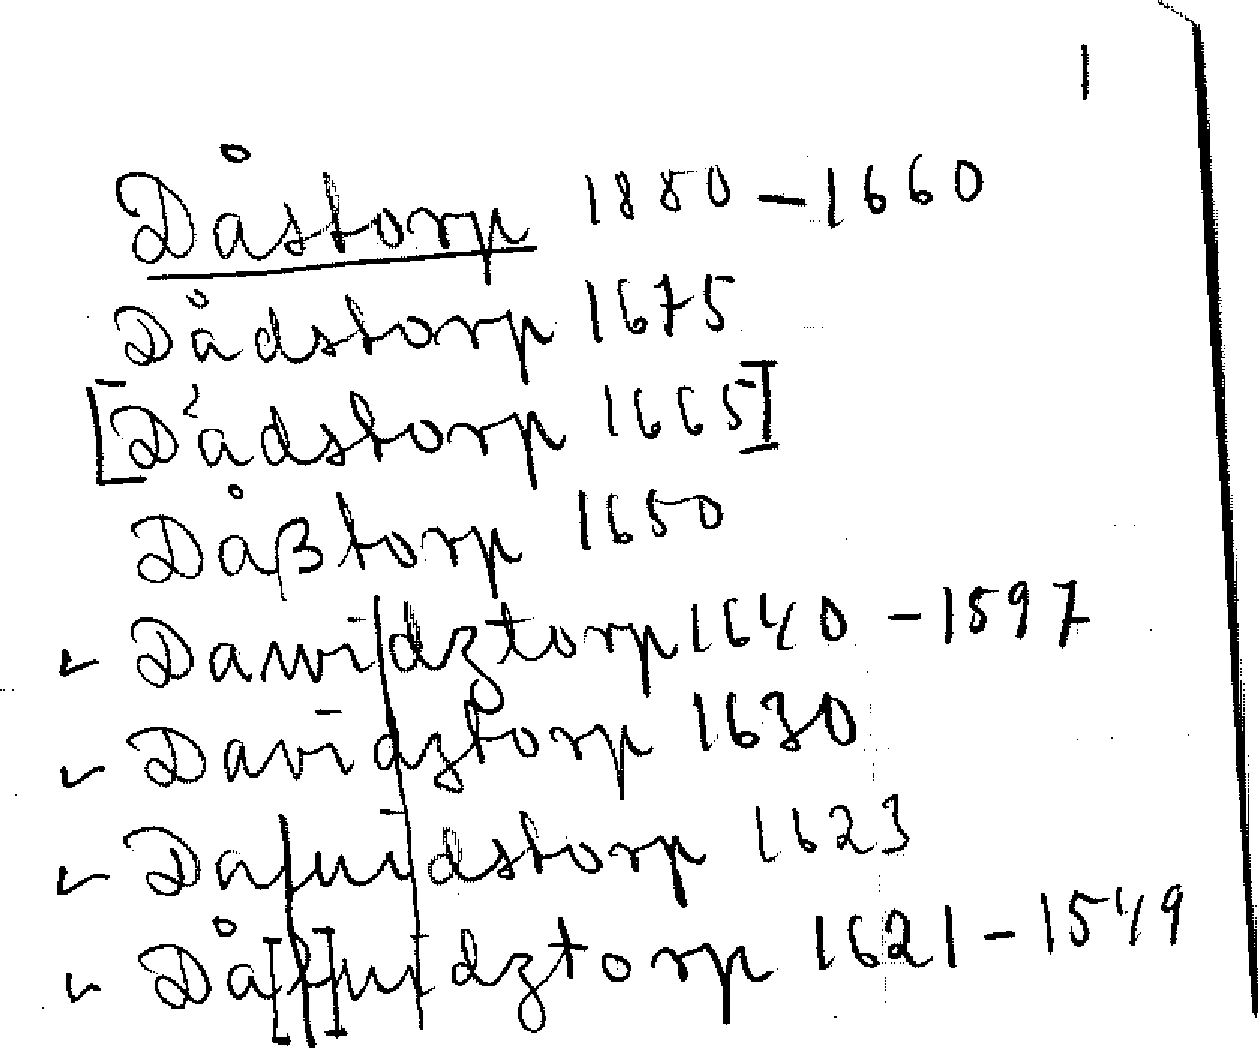 1
Dåstorp 1880 – 1660
Dådstorp 1675
[Dådstorp 1665]
Dåßtorp 1650
Dawidztorp 1640 – 1597
Davidztorp 1630
Dafuidstorp 1623
Då[f]uidztorp 1621 – 1549